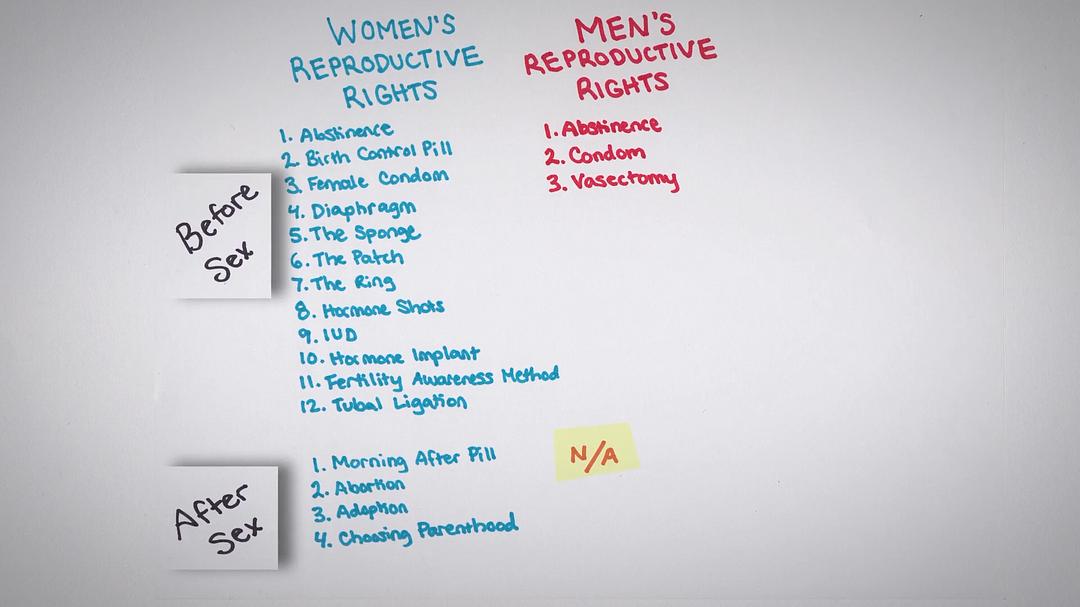 WOMEN'S
REPRODUCTIVE
RIGHTS
MEN'S
REPRODUCTIVE
RIGHTS
Before
Sex
1. Abstinence
2. Birth Control Pill
3. Female Condom
4. Diaphragm
5. The Sponge
6. The Patch
7. The Ring
8. Hormone Shots
9. IUD
10. Hormone Implant
11. Fertility Awareness Method
12. Tubal Ligation
1. Abstinence
2. Condom
3. Vasectomy
After
Sex
1. Morning After Pill
2. Abortion
3. Adoption
4. Choosing Parenthood
N/A